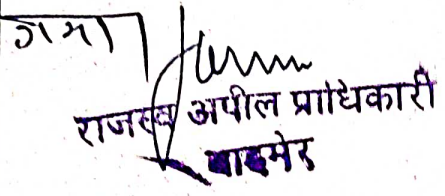 गया
राजस्व अपील प्राधिकारी
बाड़मेर